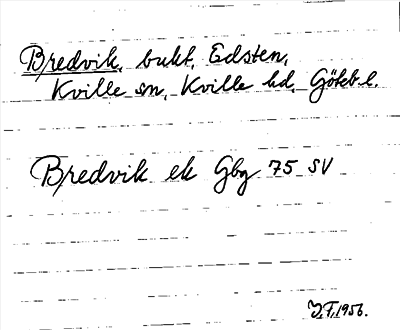 Bredvik, bukt, Edsten,
Kville sn, Kville hd, Göteb l.
Bredvik ek Gbg 75 SV
J.F. 1956.